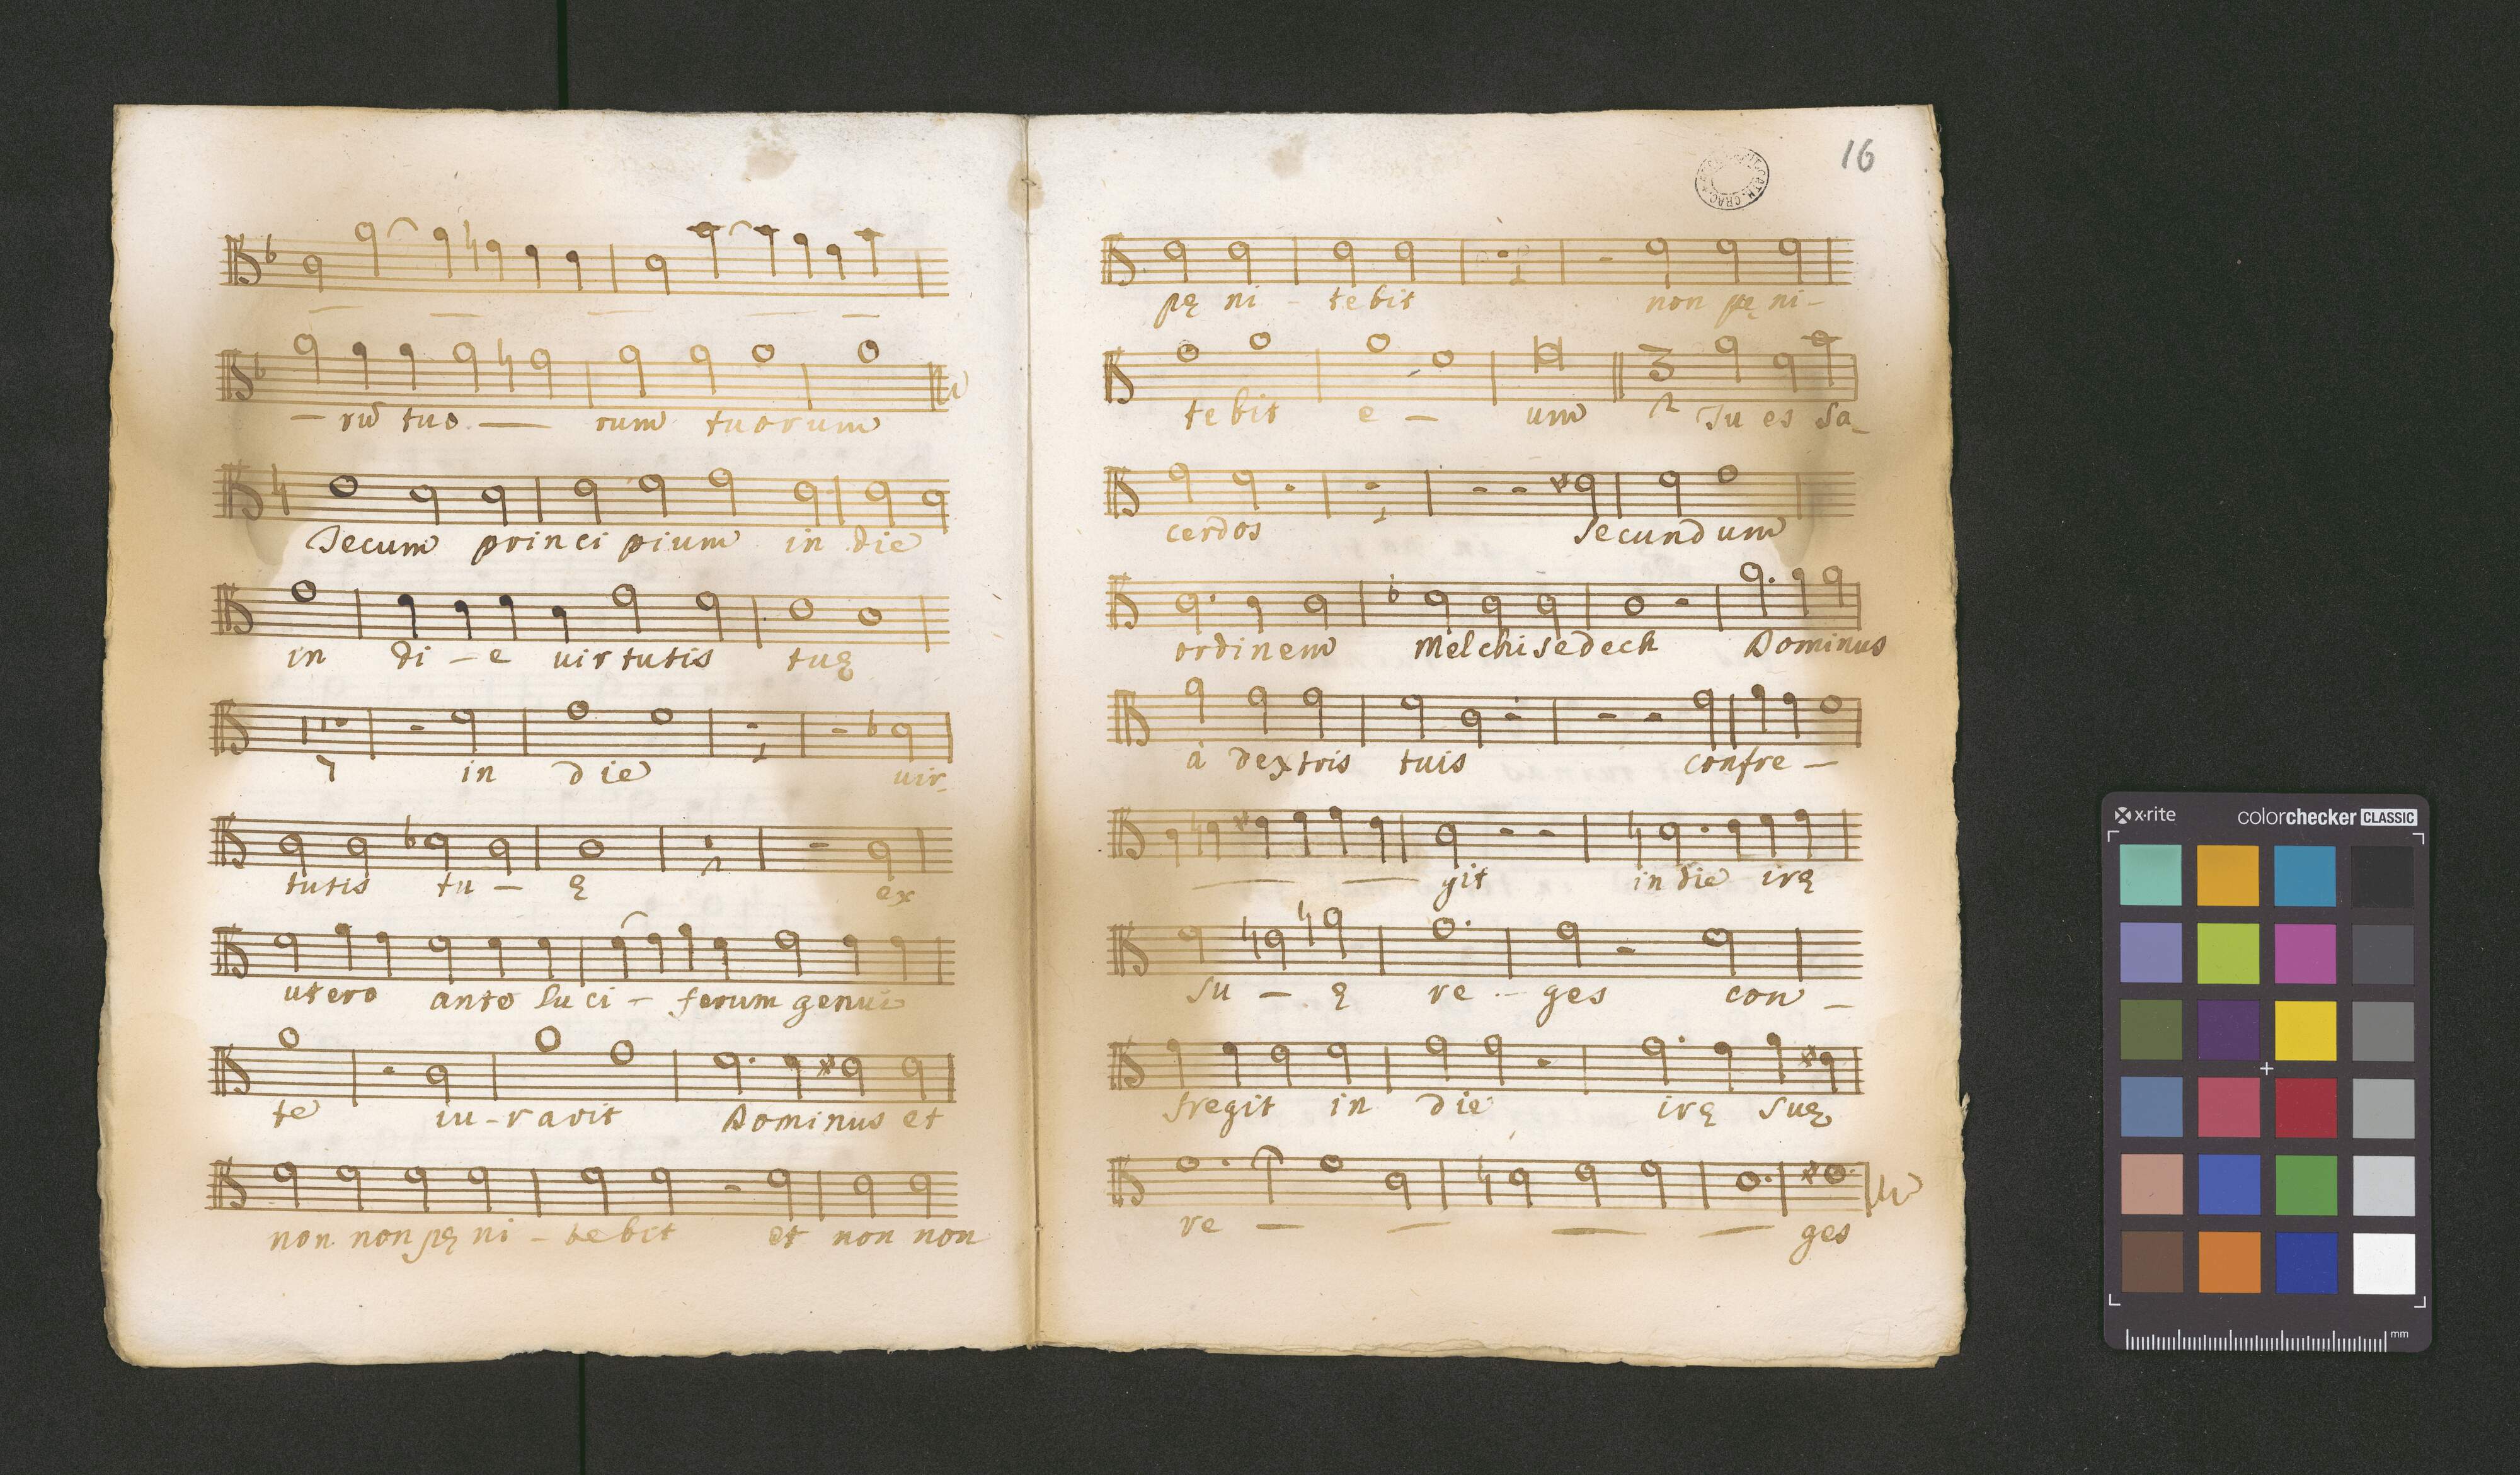 — rũ tuo — rum tuorum
Tecum princi pium in die
in di — e uir tutis tuę
7 in die uir-
tutis tu — ę 1 ex
utero ante Luci — ferum genui
te iu-ravit Dominus et
non non pę ni - tebit et non non
16
pę ni - tebit 1 non pę ni -
te bit e — um 3 2 Tu es Sa-
cerdos 1 Secundum
ordinem Melchisedech Dominus
à dextris tuis confre —
git in die irę
su — ę re - ges con —
fregit in die irę suę
re — ges
x-rite colorchecker CLASSIC
mm